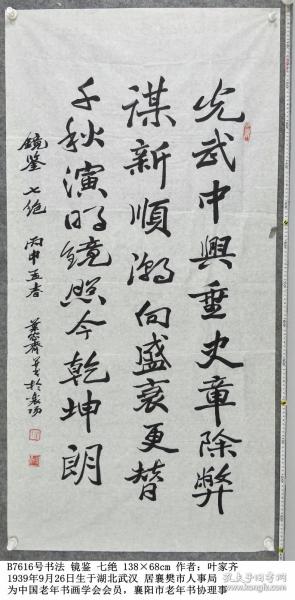 光武中興垂史章除弊
謀新順潮向盛衰更替
千秋演明鏡照今乾坤朗
鏡鉴 七绝 丙申孟春 葉家齊 书於襄阳
B7616号书法 镜鉴 七绝 138×68cm 作者：叶家齐
1939年9月26日生于湖北武汉 居襄樊市人事局
为中国老年书画学会会员，襄阳市老年书协理事